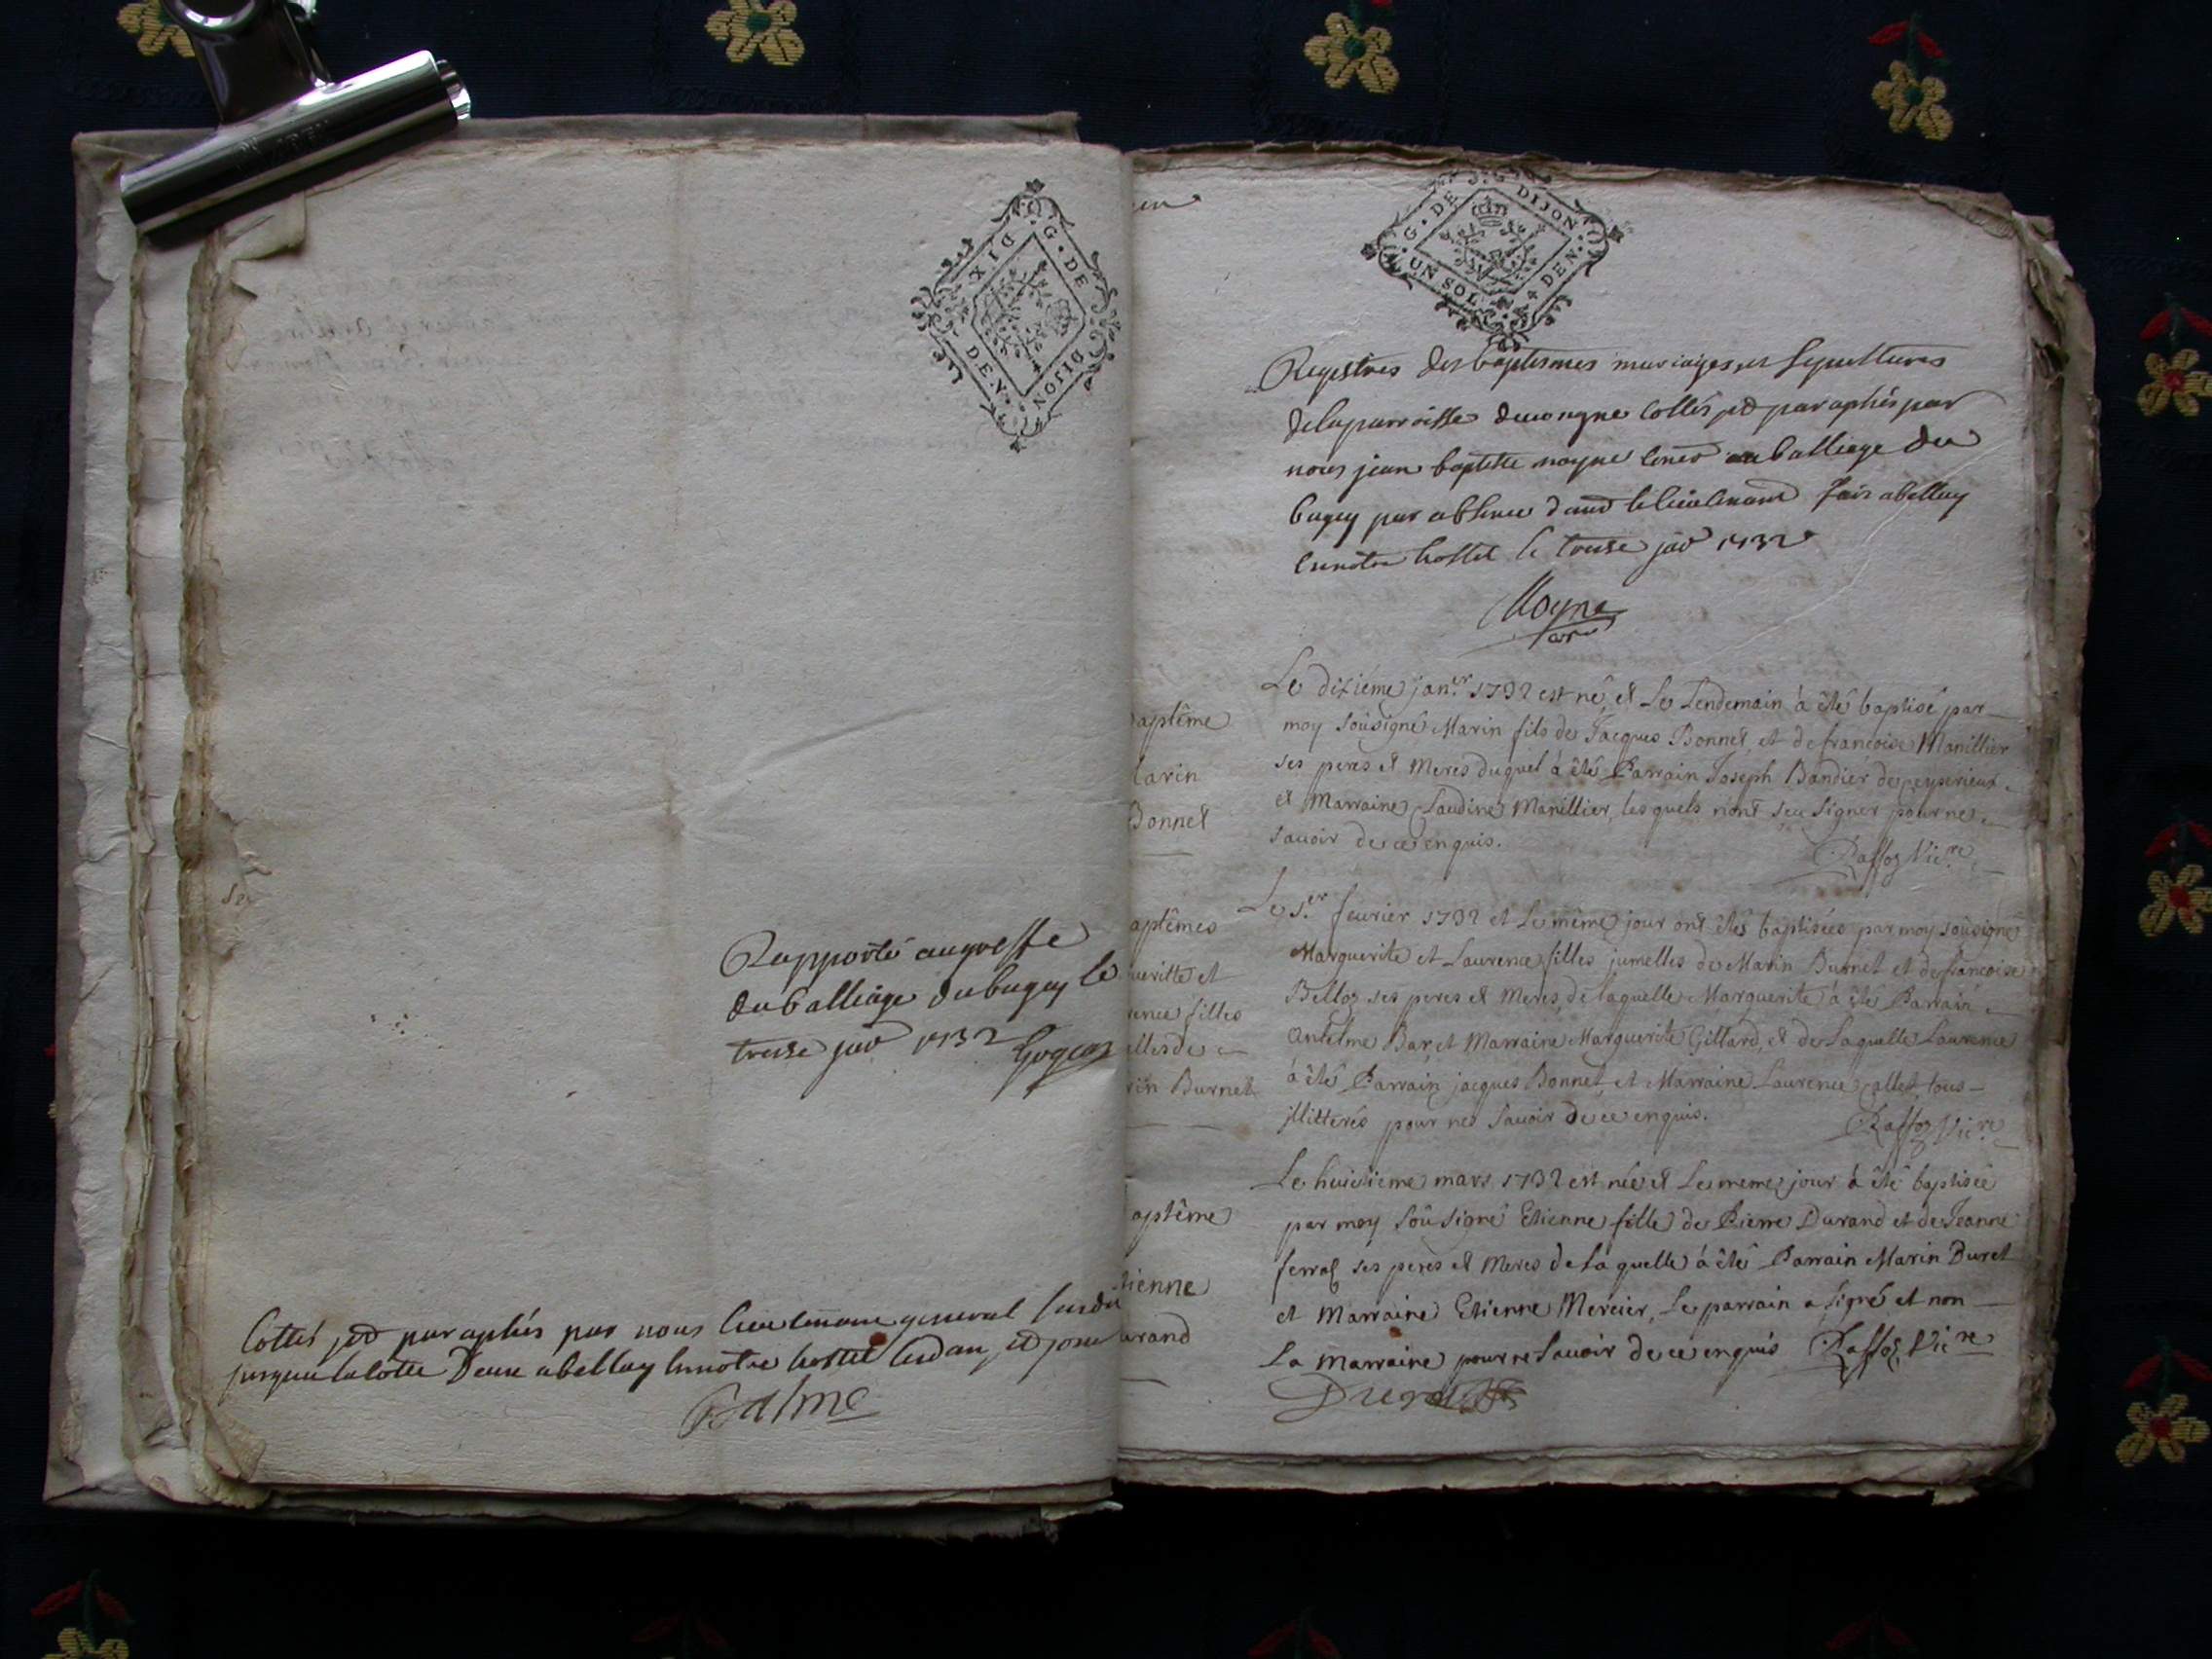 G. DE DIJON
DIX DEN.
Rapporté au greffe
du balliage du bugey le
treze jav 1732
Cottés et paraphés par nous lieutenant general susdit
jusques la cotte Deux a belley en notre hostel lesdan et jour
Balme
G. DE DIJON
UN SOL 4 DEN.
Registres des baptesmes mariages et sepultures
de la parroisse de cottés et paraphés par
nous jean baptiste moyne au balliage du
bugey par absence le lieutenant fait a belley
en notre hostel le treze jav 1732
Moyne
aptême
arin
Bonnet
Le dixiéme jan.er 1732 est né, et Le Lendemain à êté baptisé par
moy soûsigné Marin fils de Jacques Bonnet, et de francoise Manillier
ses peres et Meres duquel à êté Parrain Joseph Bandier de peyserieux
et Marraine Claudine Manillier, lesquels nont sceu signer pour ne
savoir de ce enquis.
Raffoz Vic.re
aptêmes
ueritte et
rence filles
elles de
rin Burnet
Le 1.er fevrier 1732 et Le même jour ont êtés baptisées par moy soûsigné
Marguerite et Laurence filles jumelles de Marin Burnet et de francoise
Belloz ses peres et Meres, de laquelle Marguerite à êté Parrain
Antelme Bar, et Marraine Marguerite Gillard, et de Laquelle Laurence
à êté Parrain jacques Bonnet, et Marraine Laurence callet, tous
illitterés pour ne savoir de ce enquis.
Raffoz Vic.re
aptême
tienne
urand
Le huictieme mars 1732 est née et Le meme jour à êté baptisée
par moy soûsigné Etienne fille de Pierre Durand et de Jeanne
ferraz ses peres et Meres de laquelle à êté Parrain Marin Duret
et Marraine Etienne Mercier, Le parrain a signé et non
La Marraine pour ne savoir de ce enquis Raffoz Vic.re
Duret